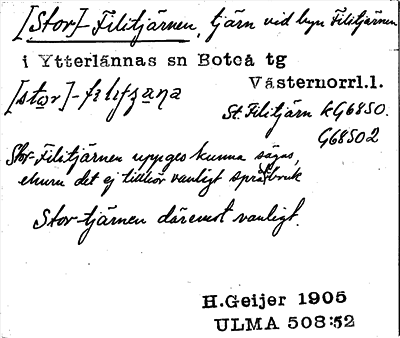 [Stor]-Filitjärnen, tjärn vid byn Filitjärnen
i Ytterlännäs sn Boteå tg
Västernorrl.l.
[stor]-filitʒana
St. Filitjärn kG6850.
G68502
Stor-Filitjärnen uppges kunna sägas,
ehuru det ej tillhör vanligt språkbruk
Stor-tjärnen däremot vanligt.
H.Geijer 1905
ULMA 508:52